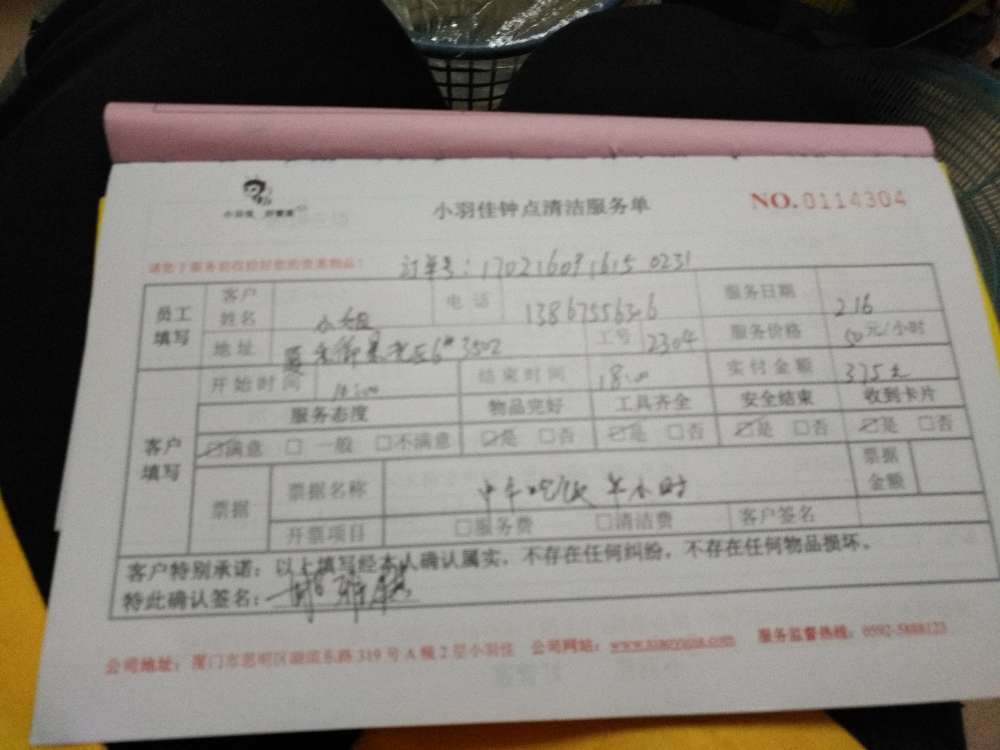 小羽佳钟点清洁服务单
NO.0114304
订单号:170216091615 0231
员工填写
客户姓名
小姐
电话
服务日期
216
地址
6#3502
工号
2304
服务价格
50元/小时
客户填写
开始时间
10:00
结束时间
18:00
实付金额
375元
服务态度
物品完好
工具齐全
安全结束
收到卡片
☑满意 □一般 □不满意
☑是 □否
☑是 □否
☑是 □否
☑是 □否
票据
票据名称
中午吃饭半小时
票据金额
开票项目
□服务费 □清洁费
客户签名
客户特别承诺:以上填写经本人确认属实,不存在任何纠纷,不存在任何物品损坏。
特此确认签名:
公司地址:厦门市思明区湖滨东路319号A幢2层小羽佳 公司网站: 服务监督热线:0592-5888123